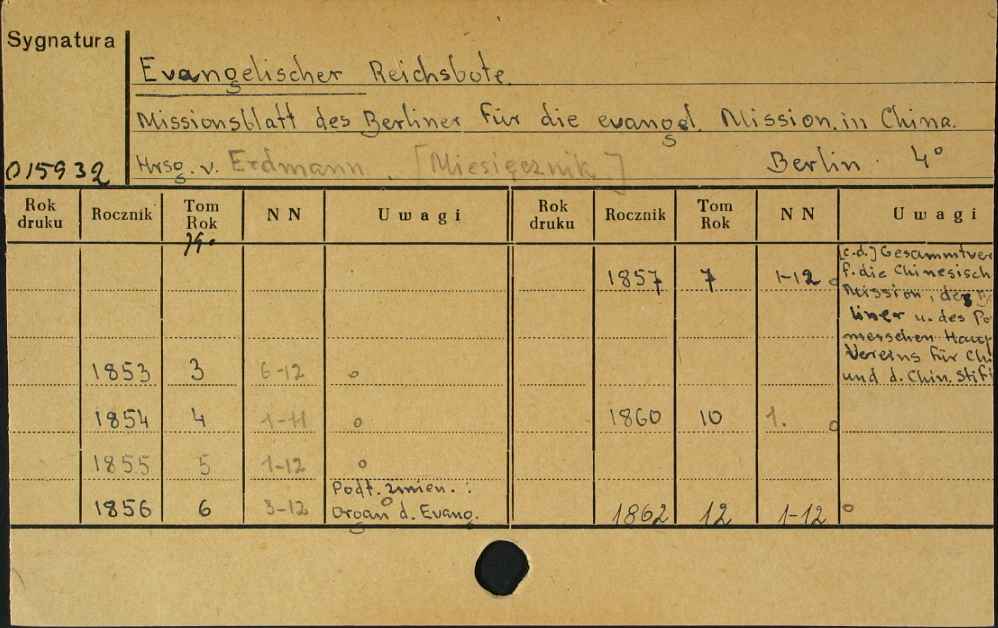 Sygnatura
Evangelischer Reichsbote.
Missionsblatt des Berliner für die evangel. Mission in China.
015932 Hrsg. v. Erdmann. [Miesięcznik.] Berlin. 4°
Rok druku Rocznik Tom Rok NN Uwagi Rok druku Rocznik Tom Rok NN Uwagi
Jg.
1857 7 1-12 [c.d.] Gesammtver
f. die Chinesisch
Mission, der
liner u. des Po
merschen Haup
Vereins für Chi
1853 3 6-12 und d. Chin. Stif
1854 4 1-11 1860 10 1.
1855 5 1-12
Podt. zmien. :
1856 6 3-12 Organ d. Evang. 1862 12 1-12